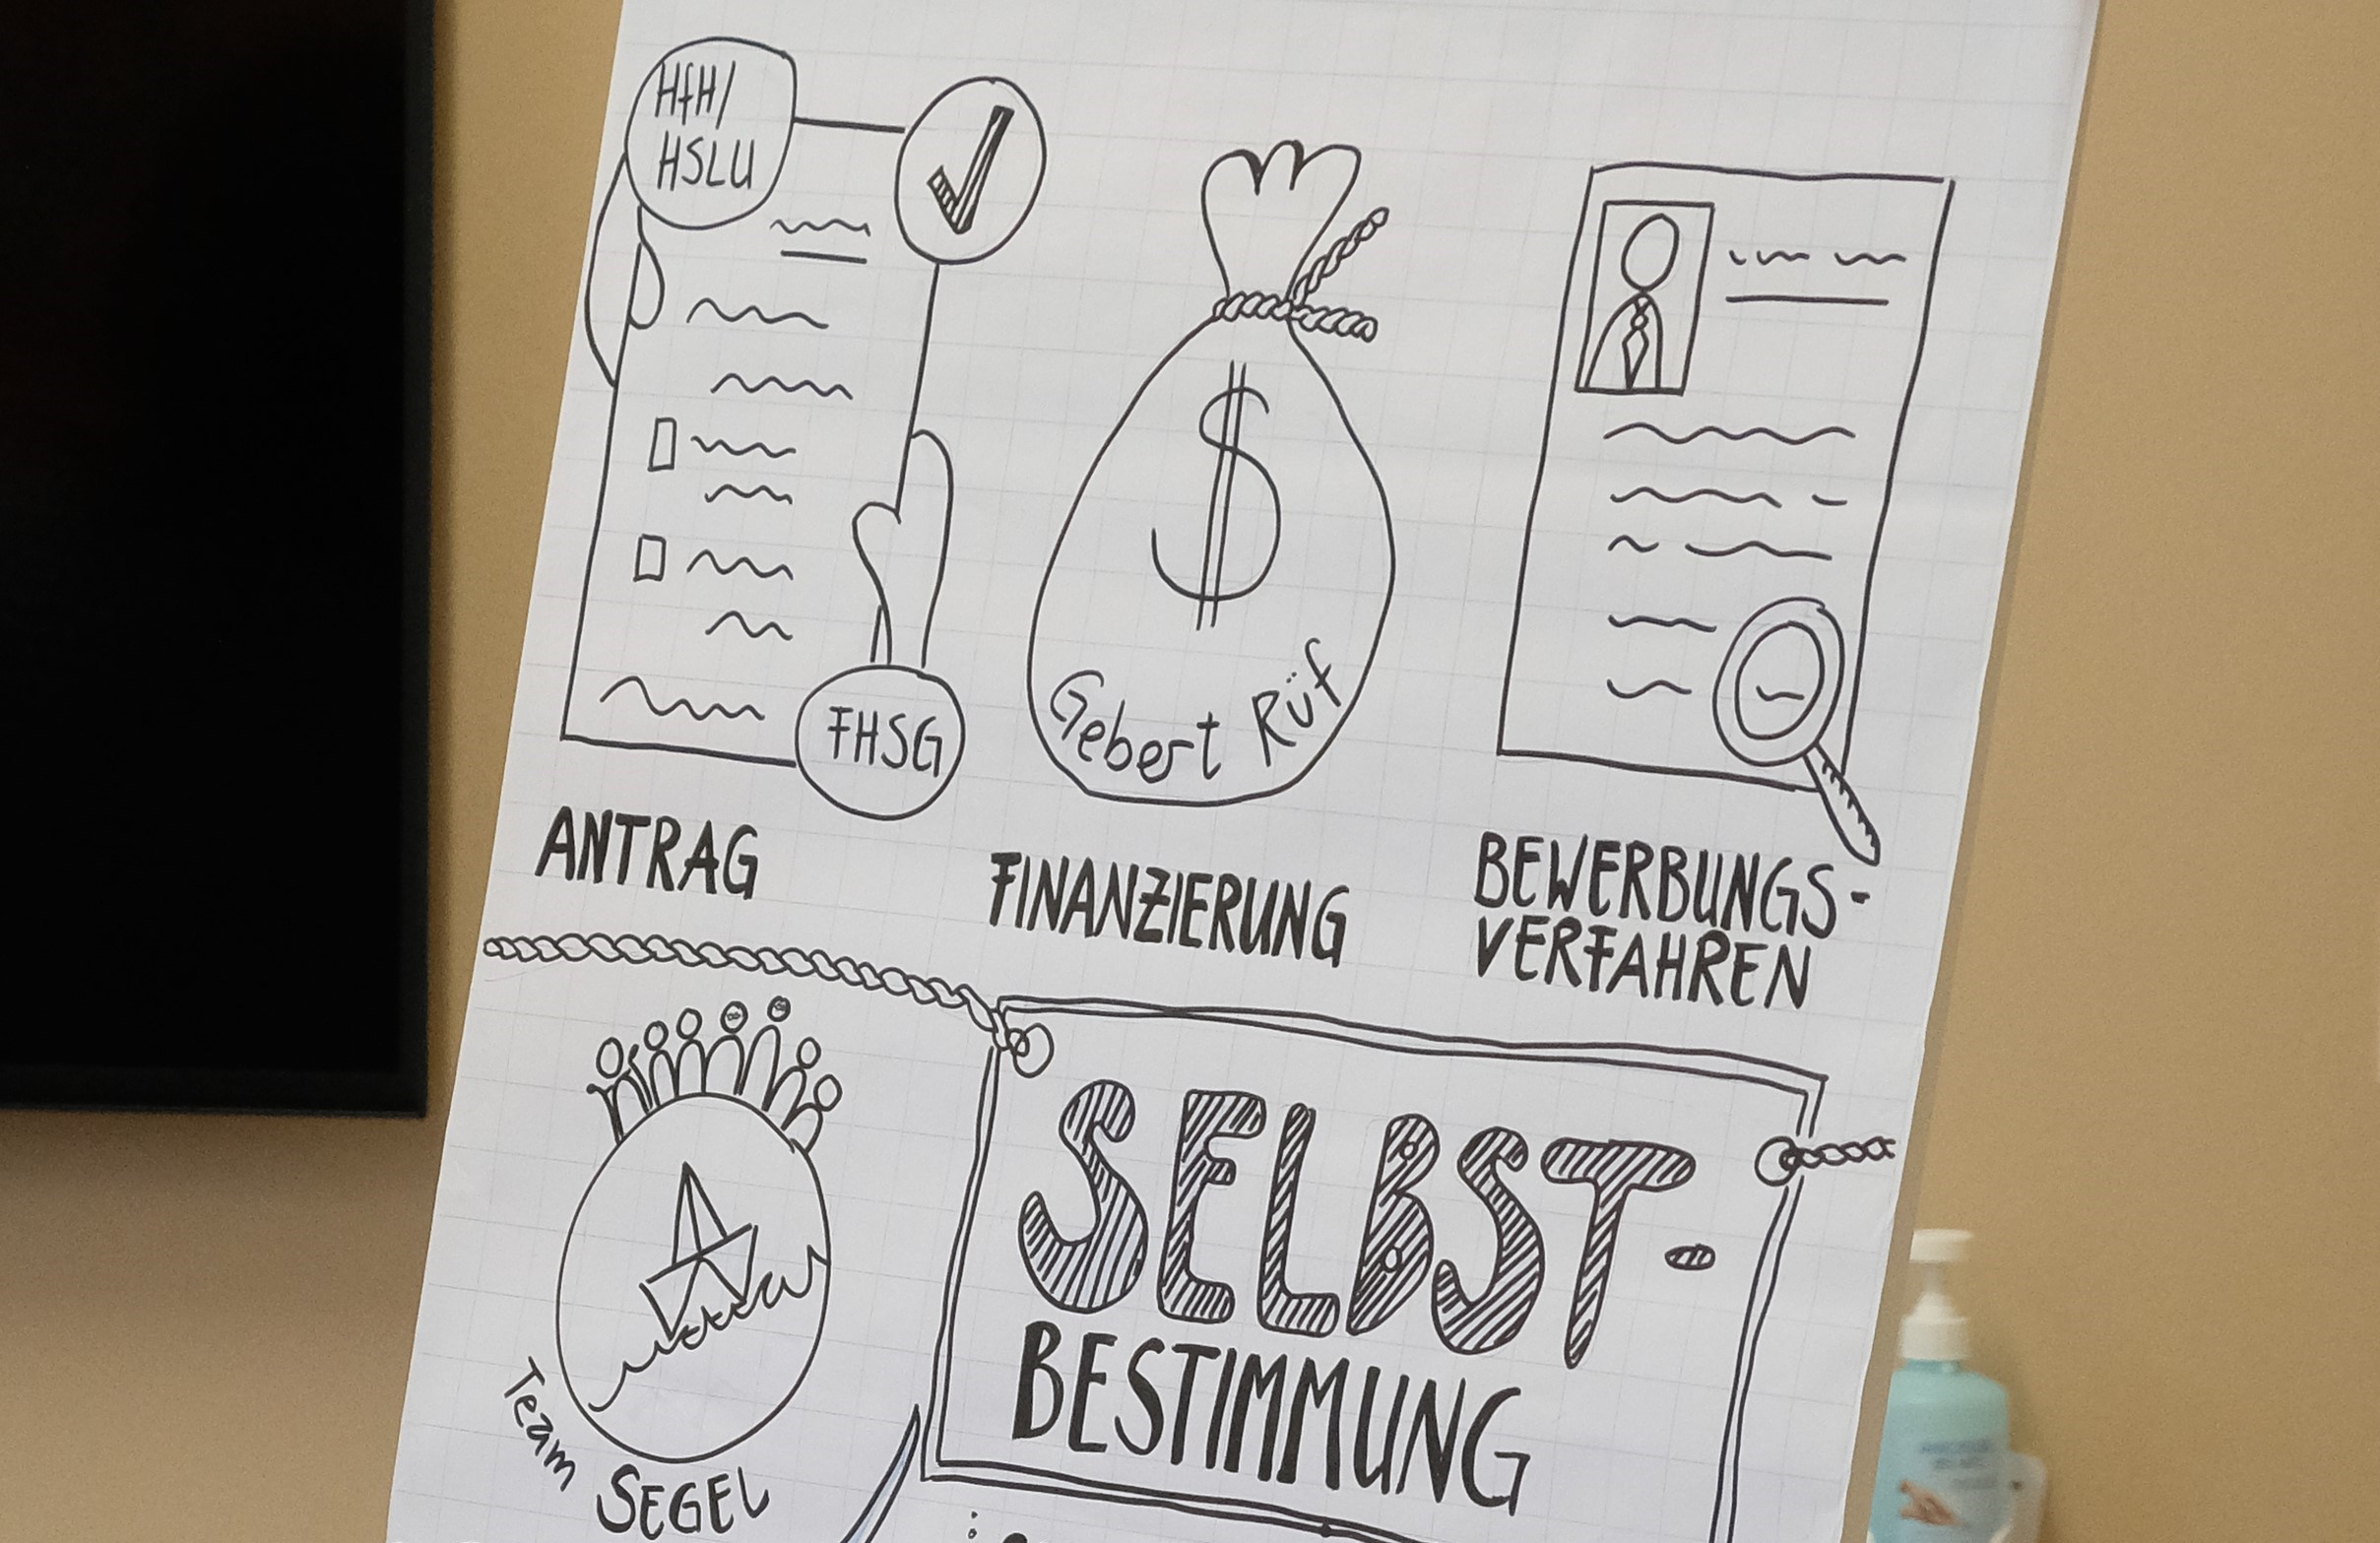 HfH/
HSLU
FHSG
$
Gebert Rüf
ANTRAG
FINANZIERUNG
BEWERBUNGS-
VERFAHREN
SELBST-
BESTIMMUNG
Team
SEGEL